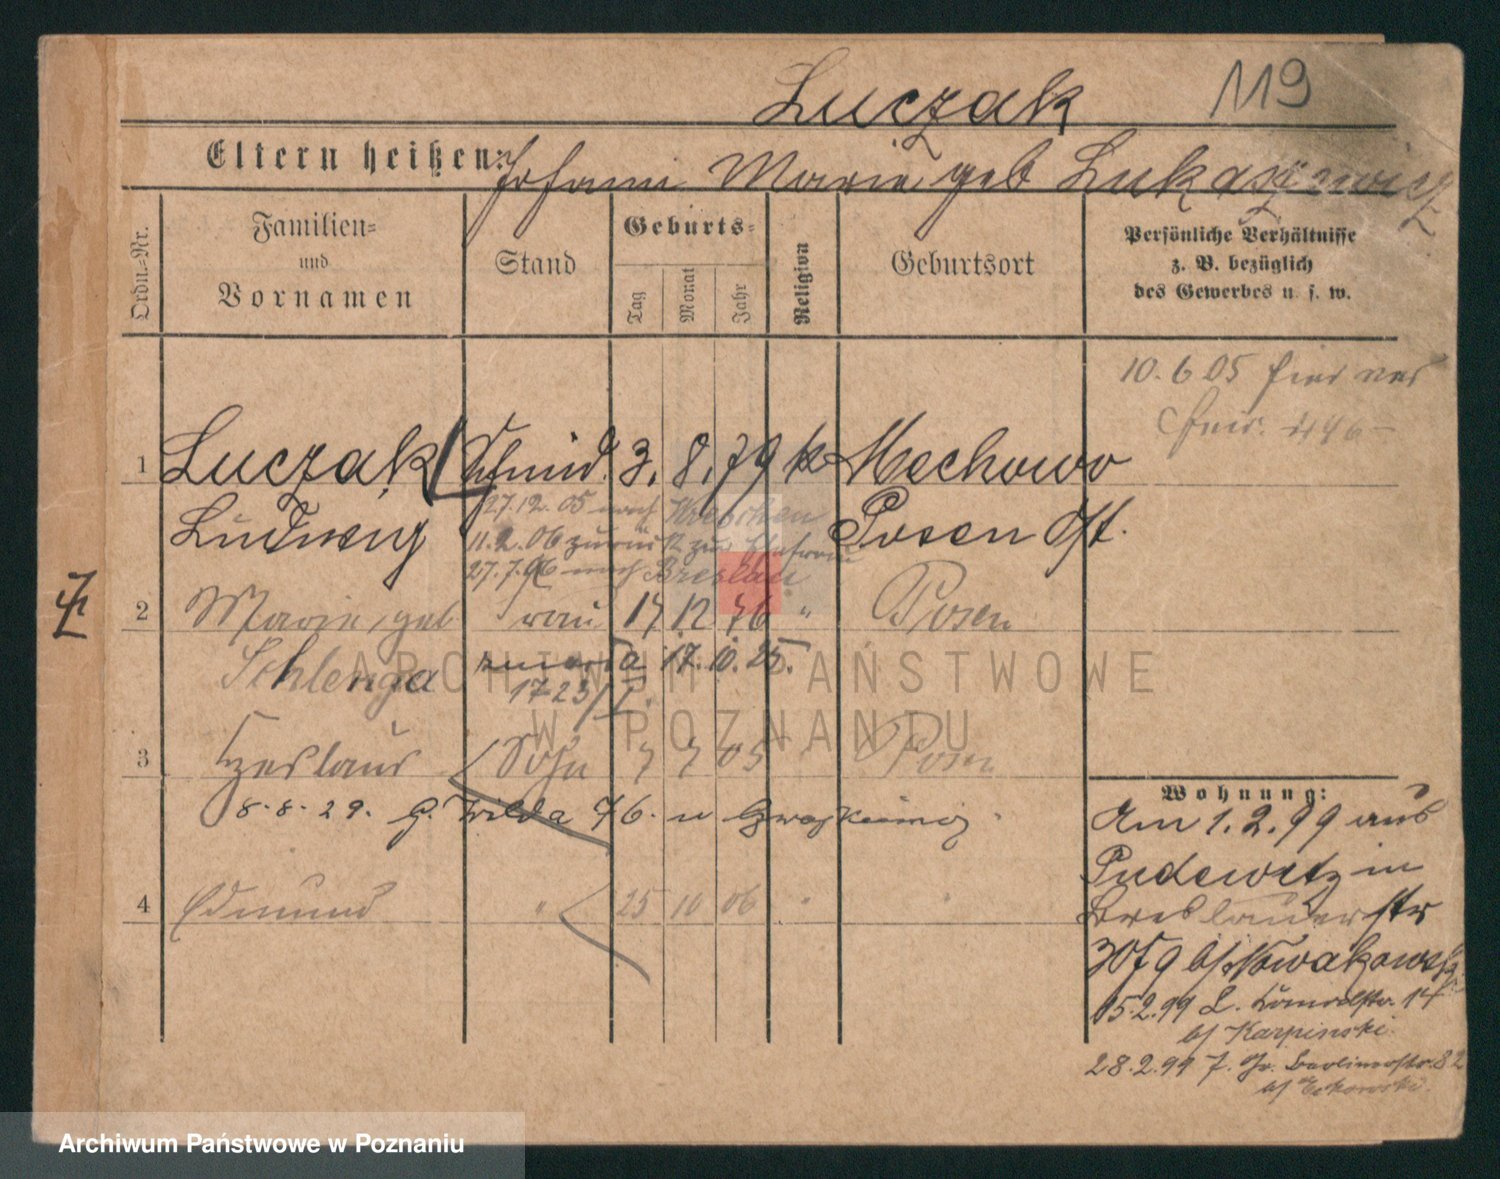 Luczak 119
Eltern heißen: Johann Marie geb Lukaszewicz
Ordn.-Nr.
Familien- und Vornamen
Stand
Geburts-
Tag Monat Jahr
Religion
Geburtsort
Persönliche Verhältnisse
z. B. bezüglich
des Gewerbes u. s. w.
10.6 05 hier
446
1 Luczak Schmid. 3. 8. 79 k Mechowo
Ludwig Posen Ost.
27.12.05 nach Wreschen
11.2.06 zurück zur Ehefrau
27.7.06 nach Breslau
2 Marie, geb 17 12 76 " Posen
Schlenga zmarła 17. 10. 25.
1723/I.
3 Czeslaus Sohn 7 7 05 " Posen
8-8-29. G. Wilda 76. u
4 Edmund " 25 10 06 " "
Wohnung:
Am 1.2.99 aus
Pudewitz in
Breslauerstr
30 b/ Nowakowski
15.2.99 14
b/ Karpinski
28.2.99 Berlinerstr. 82
ARCHIWUM PAŃSTWOWE
W POZNANIU
Archiwum Państwowe w Poznaniu